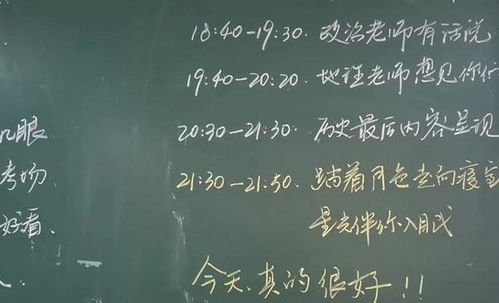 18:40-19:30. 政治老师有话说
19:40-20:20. 地理老师想见你们
几眼
20:30-21:30. 历史最后内容呈现
考场
21:30-21:50. 踏着月色走向寝室
好看.
星光伴你入眠
今天.真的很好!!